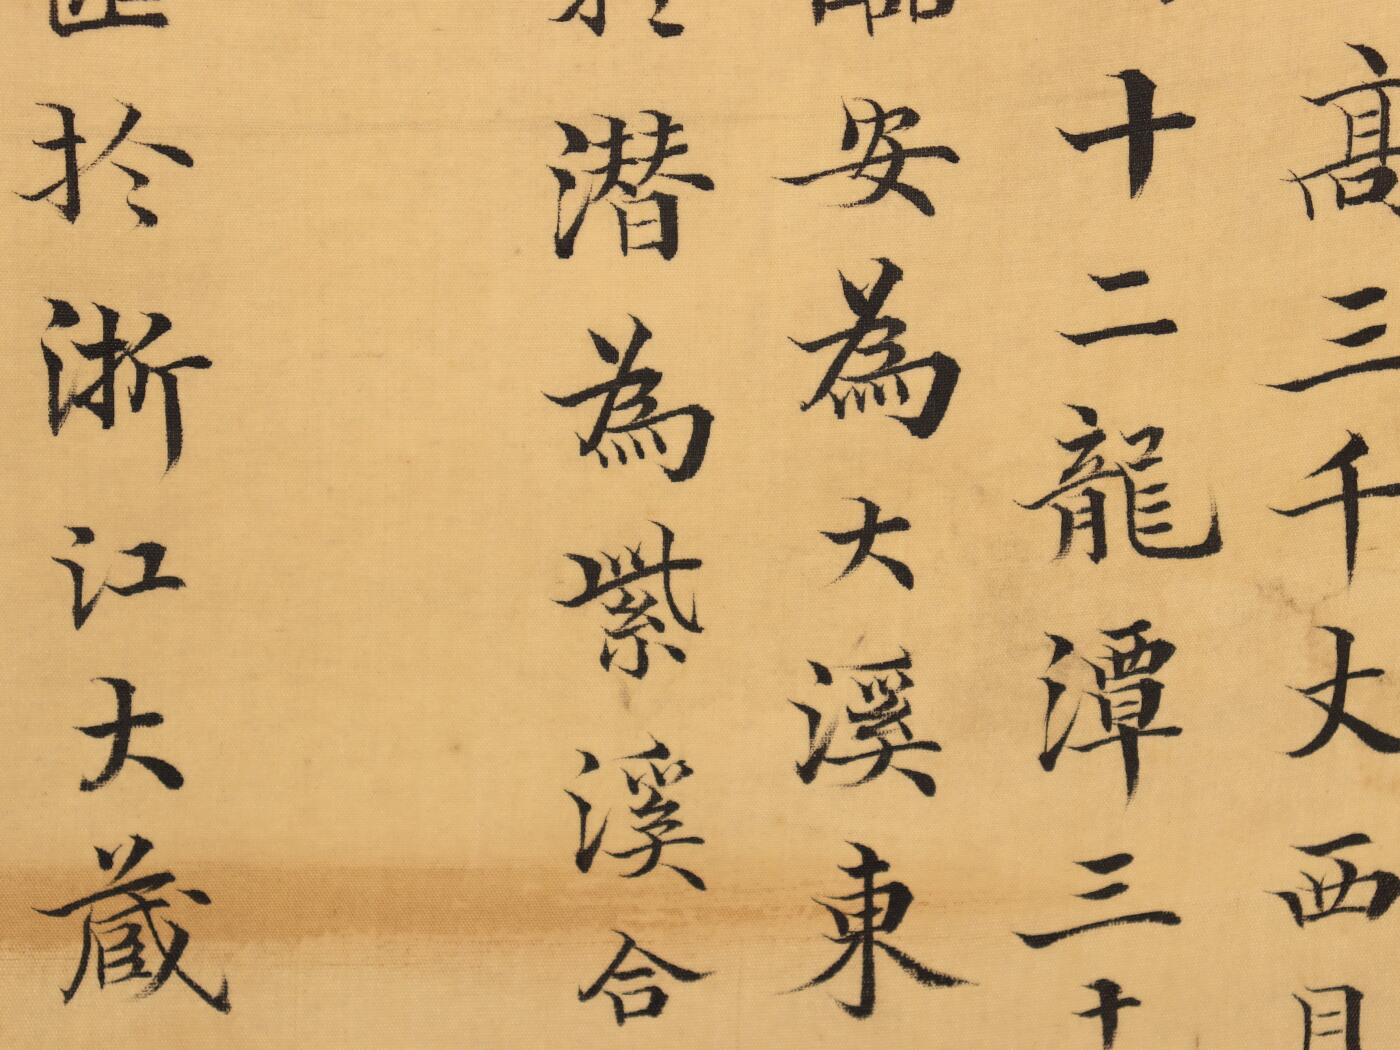 高三千丈西
十二龍潭三十
安為大溪東
潛為紫溪合
於浙江大蔵